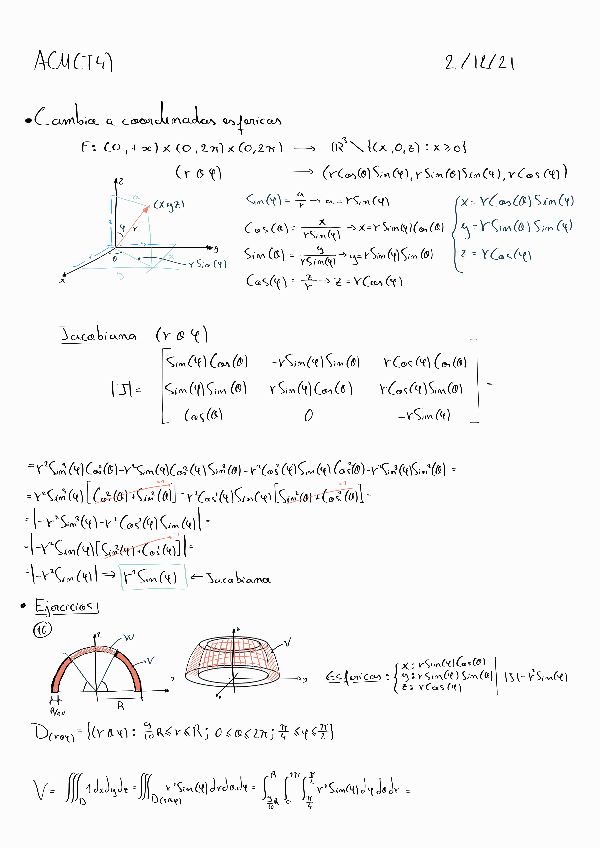 ACM(T4) 2/12/21
• Cambio a coordenadas esfericas
F: (0,+∞)×(0,2π)×(0,2π) → ℝ³\{(x,0,z): x≥0}
(r θ φ) → (rCos(θ)Sin(φ), rSin(θ)Sin(φ), rCos(φ))
z
(x y z)
φ r
θ
y
x
rSin(φ)
Sin(φ) = a/r → a = rSin(φ)
Cos(θ) = x/rSin(φ) → x = rSin(φ)Cos(θ)
Sin(θ) = y/rSin(φ) → y = rSin(φ)Sin(θ)
Cos(φ) = z/r → z = rCos(φ)
x = rCos(θ)Sin(φ)
y = rSin(θ)Sin(φ)
z = rCos(φ)
Jacobiano (r θ φ)
Sin(φ)Cos(θ) -rSin(φ)Sin(θ) rCos(φ)Cos(θ)
|J| = Sin(φ)Sin(θ) rSin(φ)Cos(θ) rCos(φ)Sin(θ) =
Cos(θ) 0 -rSin(φ)
= -r²Sin³(φ)Cos²(θ) - r²Sin(φ)Cos²(φ)Sin²(θ) - r²Cos²(φ)Sin(φ)Cos²(θ) - r²Sin³(φ)Sin²(θ) =
= -r²Sin³(φ)[Cos²(θ)+Sin²(θ)] - r²Cos²(φ)Sin(φ)[Sin²(θ)+Cos²(θ)] =
= |-r²Sin³(φ) - r²Cos²(φ)Sin(φ)| =
= |-r²Sin(φ)[Sin²(φ)+Cos²(φ)]| =
= |-r²Sin(φ)| ⇒ r²Sin(φ) ← Jacobiano
• Ejercicios:
16
W
V
R/10
R
V
Esfericas: x = rSin(φ)Cos(θ)
y = rSin(φ)Sin(θ) |J| = r²Sin(φ)
z = rCos(φ)
D(rθφ) = {(r θ φ): 9/10 R ≤ r ≤ R; 0 ≤ θ ≤ 2π; π/4 ≤ φ ≤ π/2}
V = ∭_D 1dxdydz = ∭_D(rθφ) r²Sin(φ)drdθdφ = ∫_{9/10 R}^{R} ∫_0^{2π} ∫_{π/4}^{π/2} r²Sin(φ)dφdθdr =